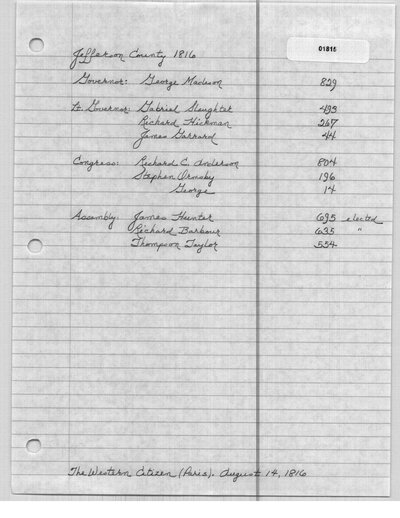 01815
Jefferson County 1816
Governor: George Madison 829
Lt. Governor: Gabriel Slaughter 493
Richard Hickman 267
James Garrard 44
Congress: Richard C. Anderson 804
Stephen Ormsby 196
George 14
Assembly: James Hunter 695 elected
Richard Barbour 635 "
Thompson Taylor 554
The Western Citizen (Paris). August 14, 1816